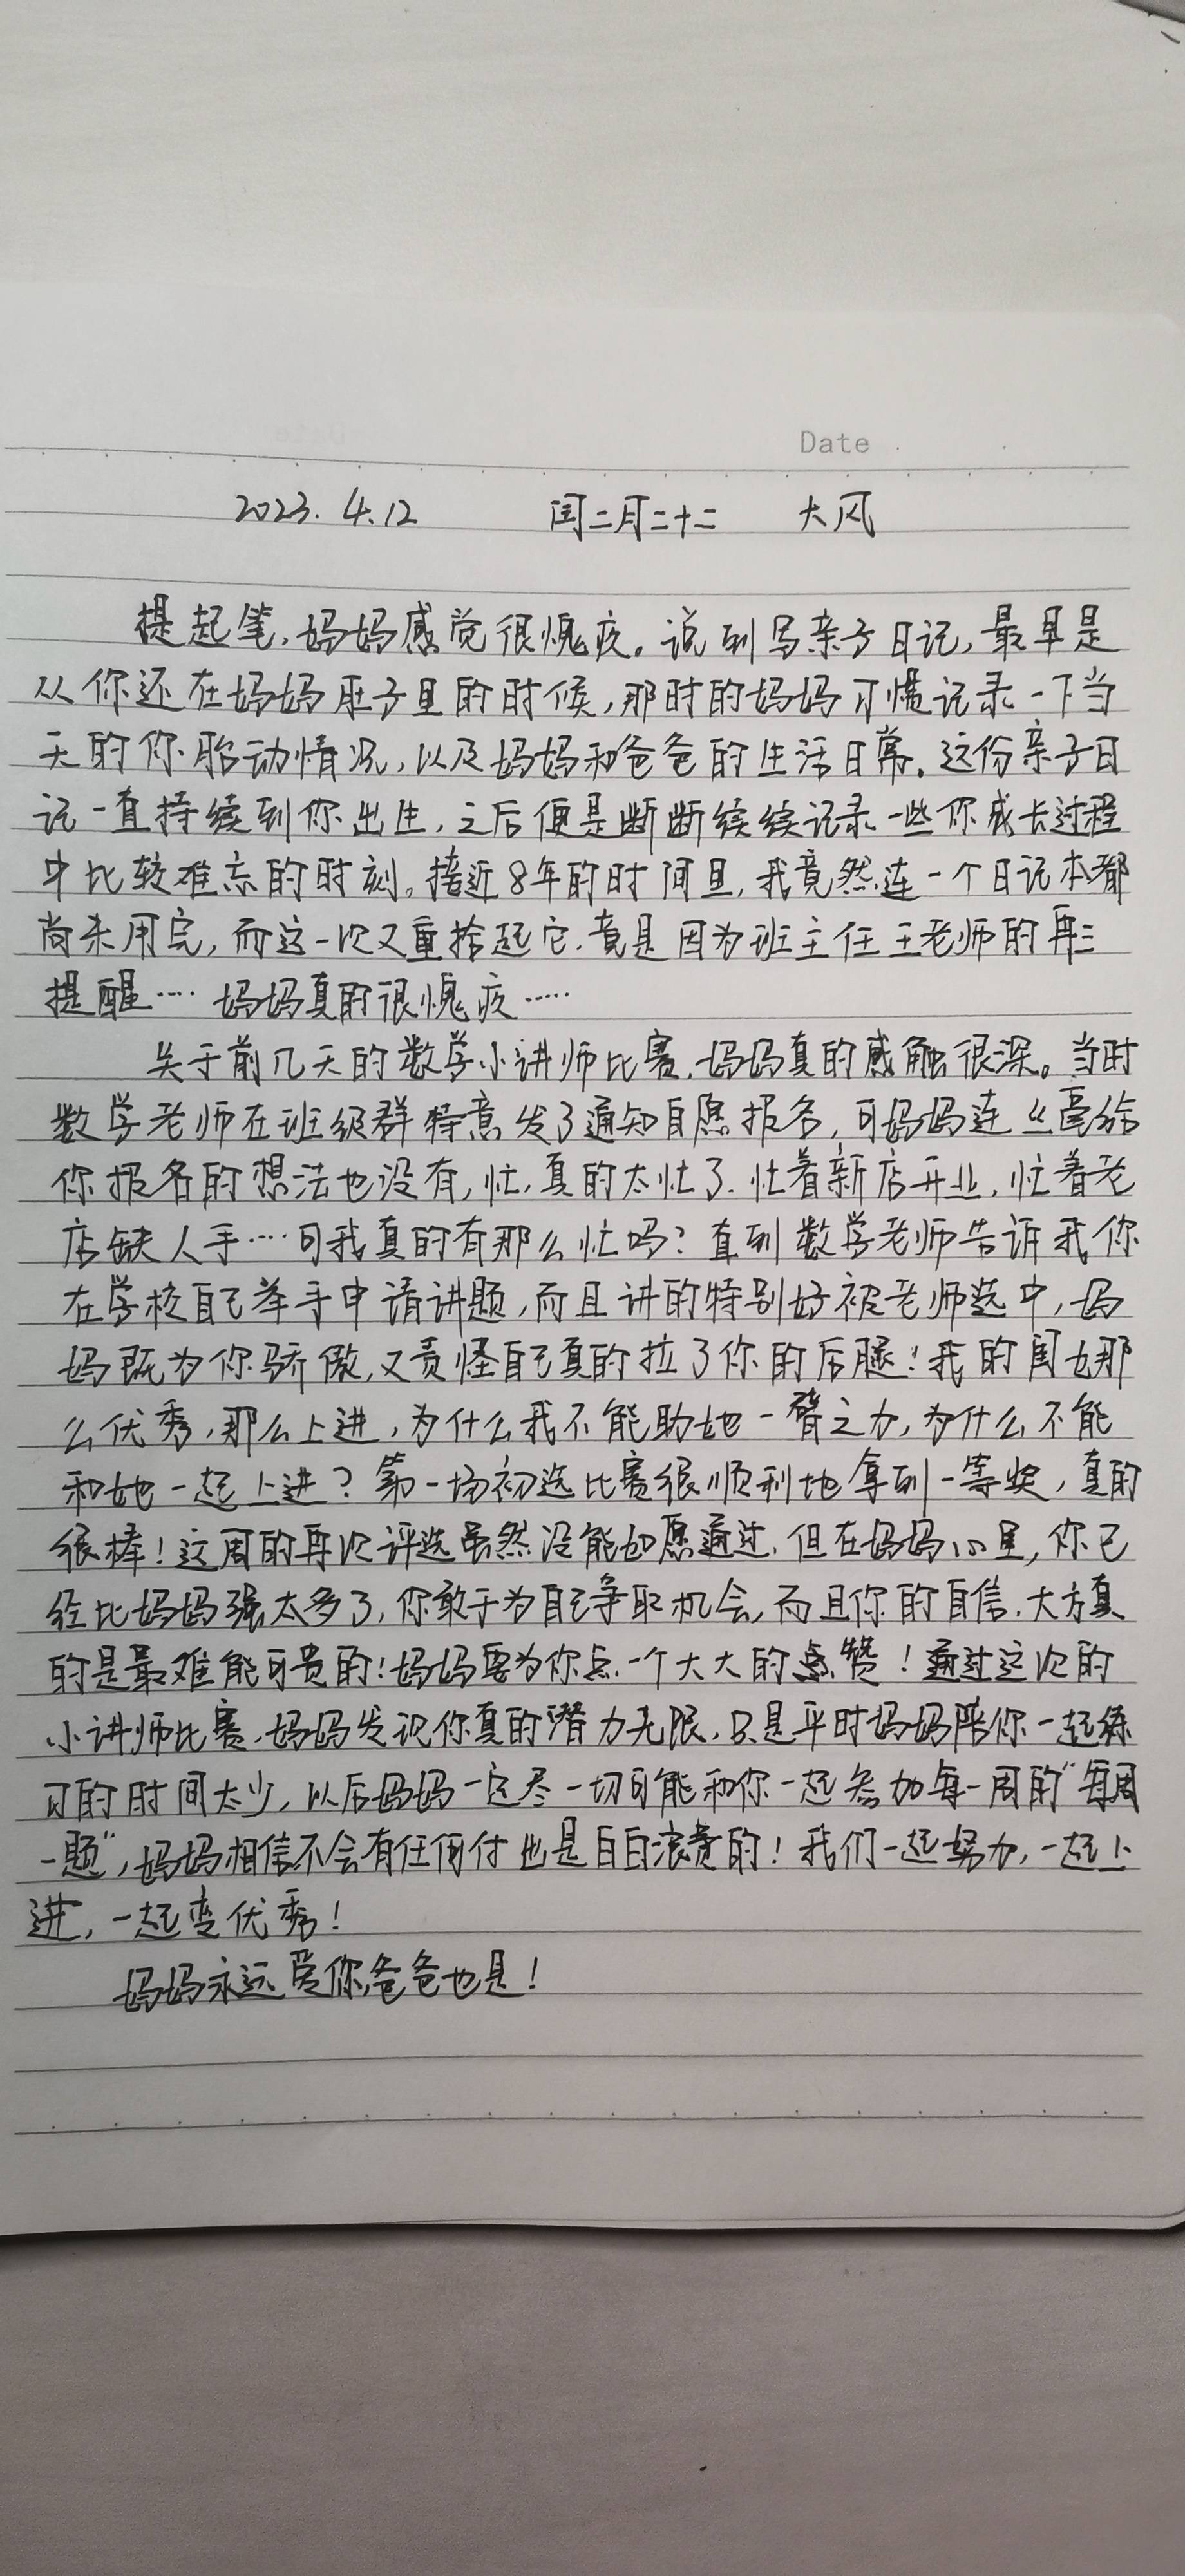 Date
2023.4.12 闰二月二十二 大风
提起笔,妈妈感觉很愧疚。说到写亲子日记,最早是
从你还在妈妈肚子里的时候,那时的妈妈习惯记录一下当
天的你胎动情况,以及妈妈和爸爸的生活日常。这份亲子日
记一直持续到你出生,之后便是断断续续记录一些你成长过程
中比较难忘的时刻。接近8年的时间里,我竟然连一个日记本都
尚未用完,而这一次又重拾起它,竟是因为班主任王老师的再三
提醒…… 妈妈真的很愧疚……
关于前几天的数学小讲师比赛,妈妈真的感触很深。当时
数学老师在班级群特意发了通知自愿报名,可妈妈连丝毫给
你报名的想法也没有,忙,真的太忙了.忙着新店开业,忙着老
店缺人手……可我真的有那么忙吗?直到数学老师告诉我你
在学校自己举手申请讲题,而且讲的特别好被老师选中,妈
妈既为你骄傲,又责怪自己真的拉了你的后腿!我的闺女那
么优秀,那么上进,为什么我不能助她一臂之力,为什么不能
和她一起上进?第一场初选比赛很顺利地拿到一等奖,真的
很棒!这周的再次评选虽然没能如愿通过,但在妈妈心里,你已
经比妈妈强太多了,你敢于为自己争取机会,而且你的自信.大方真
的是最难能可贵的!妈妈要为你点一个大大的点赞!通过这次的
小讲师比赛,妈妈发现你真的潜力无限,只是平时妈妈陪你一起练
习的时间太少,以后妈妈一定尽一切可能和你一起参加每一周的“每周
一题”,妈妈相信不会有任何付出是白白浪费的!我们一起努力,一起上
进,一起变优秀!
妈妈永远爱你,爸爸也是!